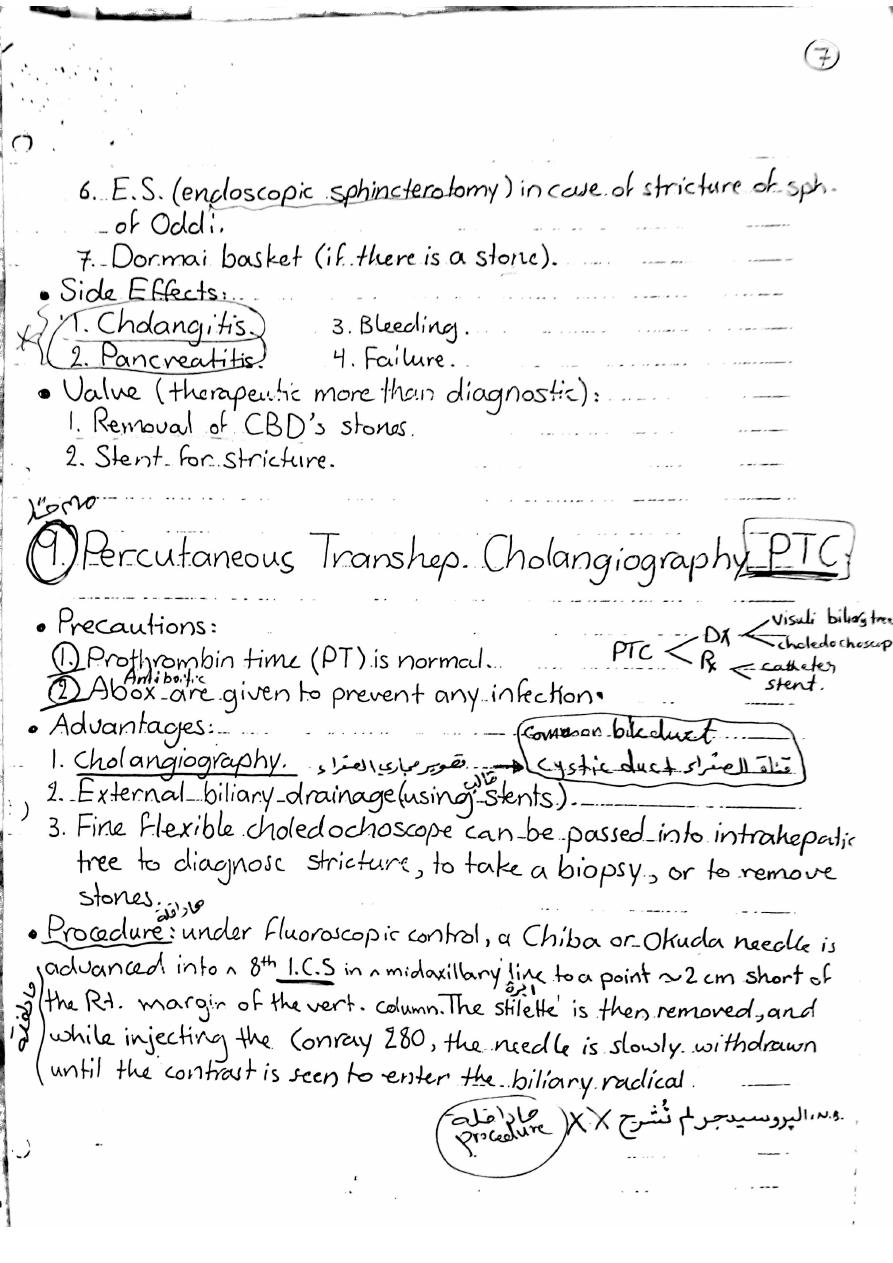 7
6. E.S. (endoscopic sphincterotomy) in case of stricture of sph.
of Oddi.
7. Dormai basket (if there is a stone).
• Side Effects:
1. Cholangitis. 3. Bleeding.
2. Pancreatitis. 4. Failure.
• Value (therapeutic more than diagnostic):
1. Removal of CBD's stones.
2. Stent for stricture.
9. Percutaneous Transhep. Cholangiography PTC:
• Precautions:
PTC < Dx < Visuli biliary tree
choledochoscop
Rx < catheter
stent.
1. Prothrombin time (PT) is normal.
Antibiotic
2. Abox are given to prevent any infection.
• Advantages:
Common bile duct
1. Cholangiography. تصوير مجاري الصفراء → Cystic duct قناة الصفراء
قالب
2. External biliary drainage (using stents).
3. Fine flexible choledochoscope can be passed into intrahepatic
tree to diagnose stricture, to take a biopsy, or to remove
stones.
• Procedure: under fluoroscopic control, a Chiba or Okuda needle is
advanced into ^ 8th I.C.S in ^ midaxillary line to a point ~2 cm short of
ابرة
the Rt. margin of the vert. column. The stilette is then removed, and
while injecting the Conray 280, the needle is slowly withdrawn
until the contrast is seen to enter the biliary radical.
N.B. البروسيدجر لم تُشرح XX
procedure